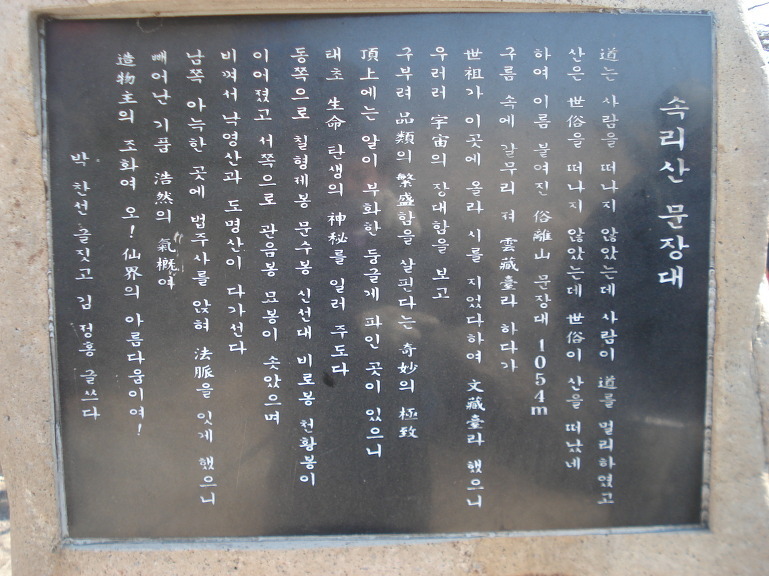 속리산 문장대
道는 사람을 떠나지 않았는데 사람이 道를 멀리하였고
산은 世俗을 떠나지 않았는데 世俗이 산을 떠났네
하여 이름 붙여진 俗離山 문장대 1054m
구름 속에 갈무리 져 雲藏臺라 하다가
世祖가 이곳에 올라 시를 지었다하여 文藏臺라 했으니
우러러 宇宙의 장대함을 보고
구부려 品類의 繁盛함을 살핀다는 奇妙의 極致
頂上에는 알이 부화한 둥글게 파인 곳이 있으니
태초 生命 탄생의 神秘를 일러 주도다
동쪽으로 칠형제봉 문수봉 신선대 비로봉 천황봉이
이어졌고 서쪽으로 관음봉 묘봉이 솟았으며
비껴서 낙영산과 도명산이 다가선다
남쪽 아늑한 곳에 법주사를 앉혀 法脈을 잇게 했으니
빼어난 기품 浩然의 氣概여
造物主의 조화여 오! 仙界의 아름다움이여!
박 찬선 글짓고 김 정홍 글쓰다